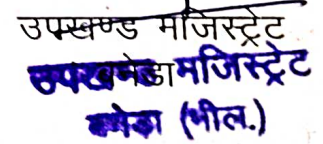 उपखण्ड मजिस्ट्रेट
बनेडा मजिस्ट्रेट
(भील.)